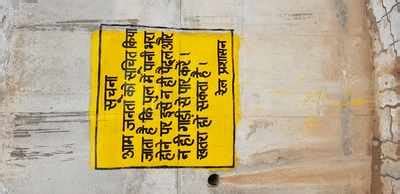 सूचना
आम जनता को सूचित किया
जाता है कि पुल में पानी भरा
होने पर इसे न ही पैदल और
न ही गाड़ी से पार करें।
खतरा हो सकता है।
रेल प्रशासन